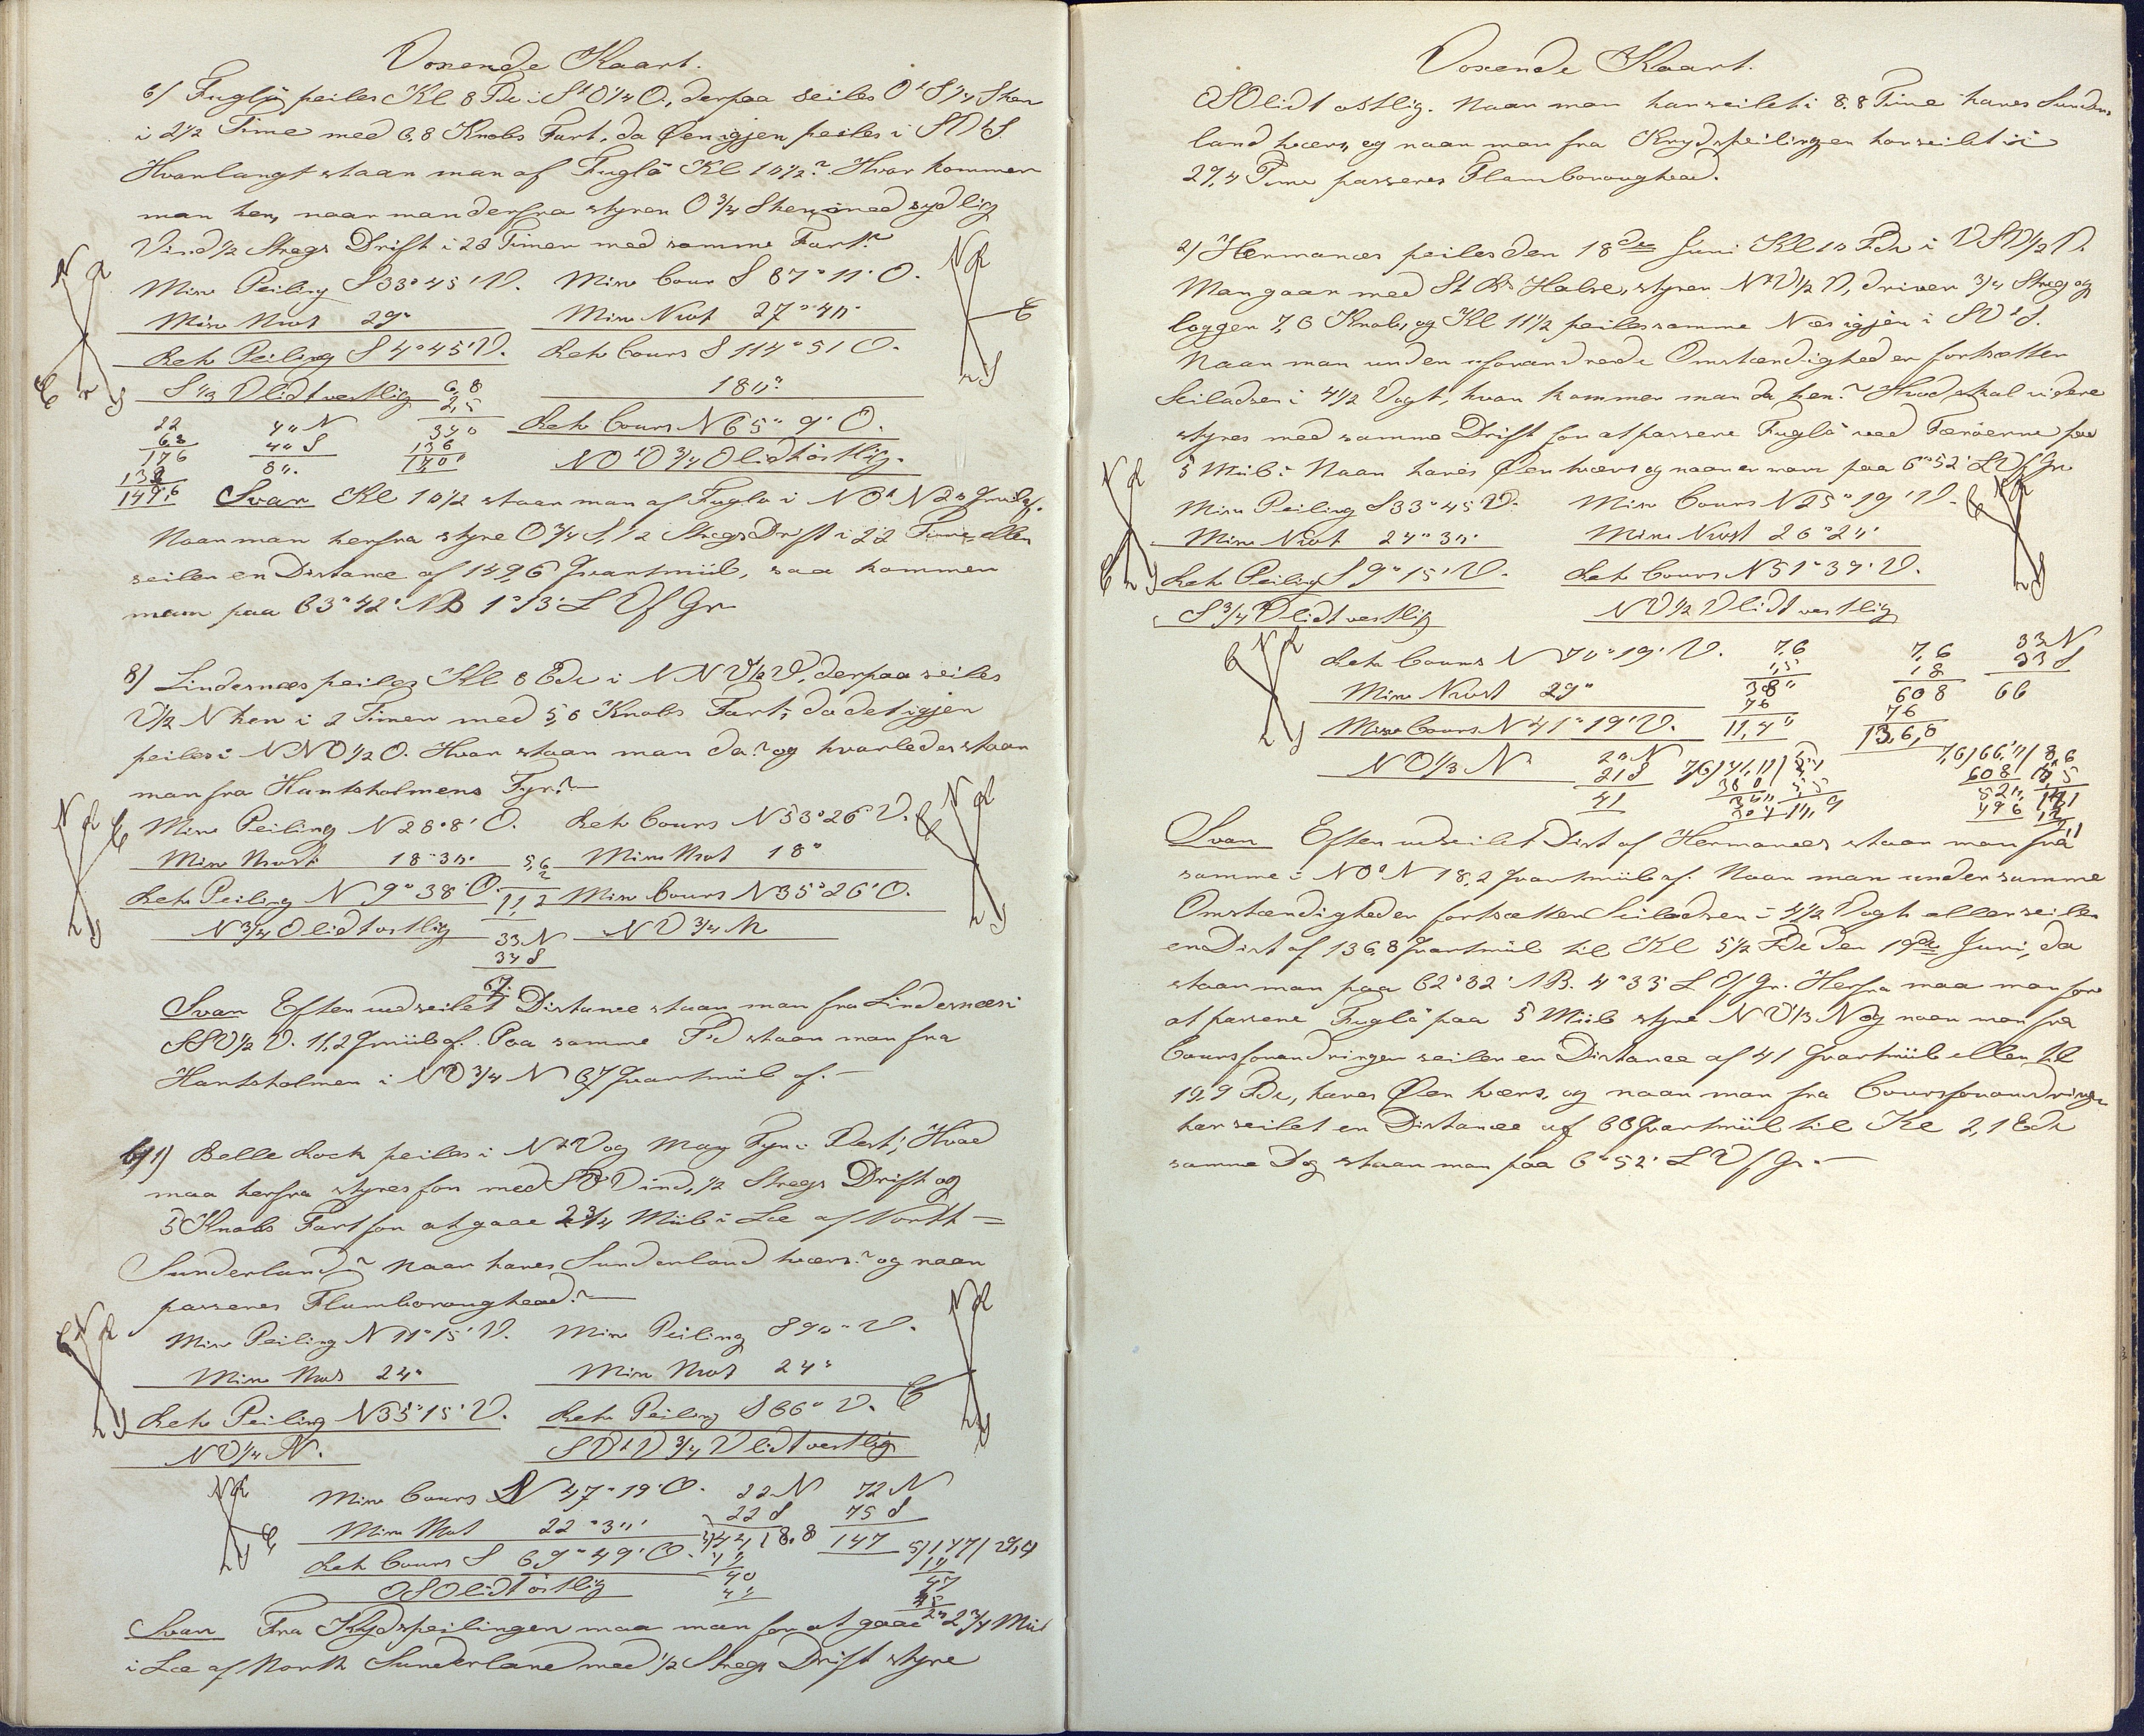 Voxende Kaart.
6/ Fuglø peiles Kl 8 Fde i StO¼O, derpaa seiles OtS¼S hen
i 2½ Time med 6,8 Knobs Fart, da Øen igjen peiles i SVtS.
Hvorlangt staar man af Fuglö Kl 10½? Hvor kommer
man hen, naar man derfra styrer O¾S hen, med sydlig
Vind ½ Stregs Drift i 22 Timer med samme Fart?
Misv Peiling S33°45'V. Misv Cours S 87°11'O.
Misv Nvst 29° Misv Nvst 27°40'
Retv Peiling S4°45'V. Retv Cours S 114°51'O.
S⅓V lidt vestlig 6,8 180°
2,5
22 40 N 340 Retv Cours N65°9'O.
6,8 40 S 136
176 80. 17,00 NOtO¾O lidt østlig.
132
149,6 Svar Kl 10½ staar man af Fuglö i NOtN 20 Qvml af.
Naar man herfra styre O¾S, ½ Stregs Drift i 22 Time, eller
seiler en Distance af 149,6 Qvartmiil, saa kommer
man paa 63°42' NB 1°13' L V f Gr
8/ Lindernæs peiles Kl 8 Edv i NNV½V, derpaa seiles
V½N hen i 2 Timer med 5,6 Knobs Fart, da det igjen
peiles i NNO½O. Hvor staar man da? og hvorledes staar
man fra Hantsholmens Fyr?
Misv Peiling N28°8'O. Retv Cours N53°26'V.
Misv Nvst 18°30' 5,6 Misv Nvst 18°
2
Retv Peiling N 9°38'O. 11,2 Misv Cours N35°26'O.
N¾O lidt østlig 33 N NV¾N
34 S
67.
Svar Efter udseilet Distance staar man fra Lindernæs i
SSV½V. 11,2 Qvmiil af. Paa samme Tid staar man fra
Hantsholmen i NV¾N 67 Qvartmiil af.
6/1) Belle Rock peiles i NtV og May Fyr i Vest; Hvad
maa herfra styres for med SV Vind, ½ Stregs Drift og
5 Knobs Fart for at gaae 2¾ Miil i Læ af North
Sunderland? Naar haves Sunderland tværs? og naar
passeres Flamboroughead?
Misv Peiling N 11°15'V. Misv Peiling S90° V.
Misv Nvst 24° Misv Nvst 24°
Retv Peiling N35°15'V. Retv Peiling S66° V.
NV¼N. SVtV¾V lidt vestlig
Misv Cours N 47°19'O. 22 N 72 N
22 S 75 S
Misv Nvst 22°30' 5/44/8,8 147
Retv Cours S 69°49'O. 40 5/147/29,4
40 10
OSO lidt østlig 40 47
45
20
Svar Fra Krydspeilingen maa man for at gaae 2¾ Miil
i Læ af North Sunderland med ½ Stregs Drift styre
Voxende Kaart.
OSO lidt østlig. Naar man har seilet i 8.8 Time haves Sunder
land tværs, og naar man fra Krydspeilingen har seilet i
29,4 Time passeres Flamboroughead.
2/ Hermanæs peiles den 18de Juni Kl 10 Fde i VSV½V.
Man gaar med St B Halse, styrer NtV½V, driver ¾ Streg og
logger 7,6 Knob, og Kl 11½ peiles samme Næs igjen i SVtS.
Naar man under uforandrede Omstændigheder fortsætter
Seiladsen i 4½ Vagt, hvor kommer man da hen? Hvad skal videre
styres med samme Drift for at passere Fuglö ved Færöerne paa
5 Miil? Naar haves Øen tværs og naar er man paa 6°52' L V f Gr
Misv Peiling S33°45'V. Misv Cours N25°19'V.
Misv Nvst 24°30' Misv Nvst 26°20'
Retv Peiling S9°15'V. Retv Cours N51°39'V.
S¾V lidt vestlig NV½V lidt vestlig
Retv Cours N 70°19'V. 7,6 7,6 33 N
1,5 18 33 S
Misv Nvst 29° 380 608 66
76 76
Misv Cours N 41°19'V. 11,40 136,8
NV⅓N 20 N
21 S 76/41,0/5,4 7,6/66,0/8,6
41 380 5,5 608 5,5
300 10,9 520 14,1
304 496 12
2,1
Svar Efter udseilet Dist af Hermanæs staar man fra
samme i NOtN 18,2 Qvartmiil af. Naar man under samme
Omstændigheder fortsætter Seiladsen i 4½ Vagt eller seiler
en Dist af 136,8 Qvartmiil til Kl 5½ Fde den 19de Juni, da
staar man paa 62°32' NB. 4°33' L V f Gr. Herfra maa man for
at passere Fuglö paa 5 Miil styre NV⅓N og naar man fra
Coursforandringen seiler en Distance af 41 Qvartmiil eller til
10,9 Fde, haves Øen tværs, og naar man fra Coursforandringen
har seilet en Distance af 66 Qvartmiil til Kl 2,1 Edv
samme Dag staar man paa 6°52' L V f Gr.